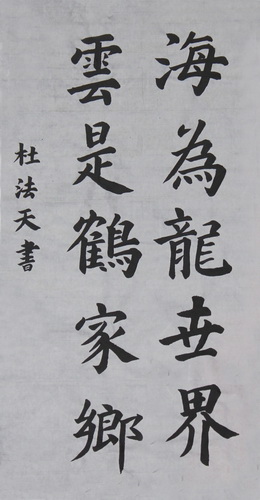 海為龍世界
雲是鶴家鄉
杜法天書